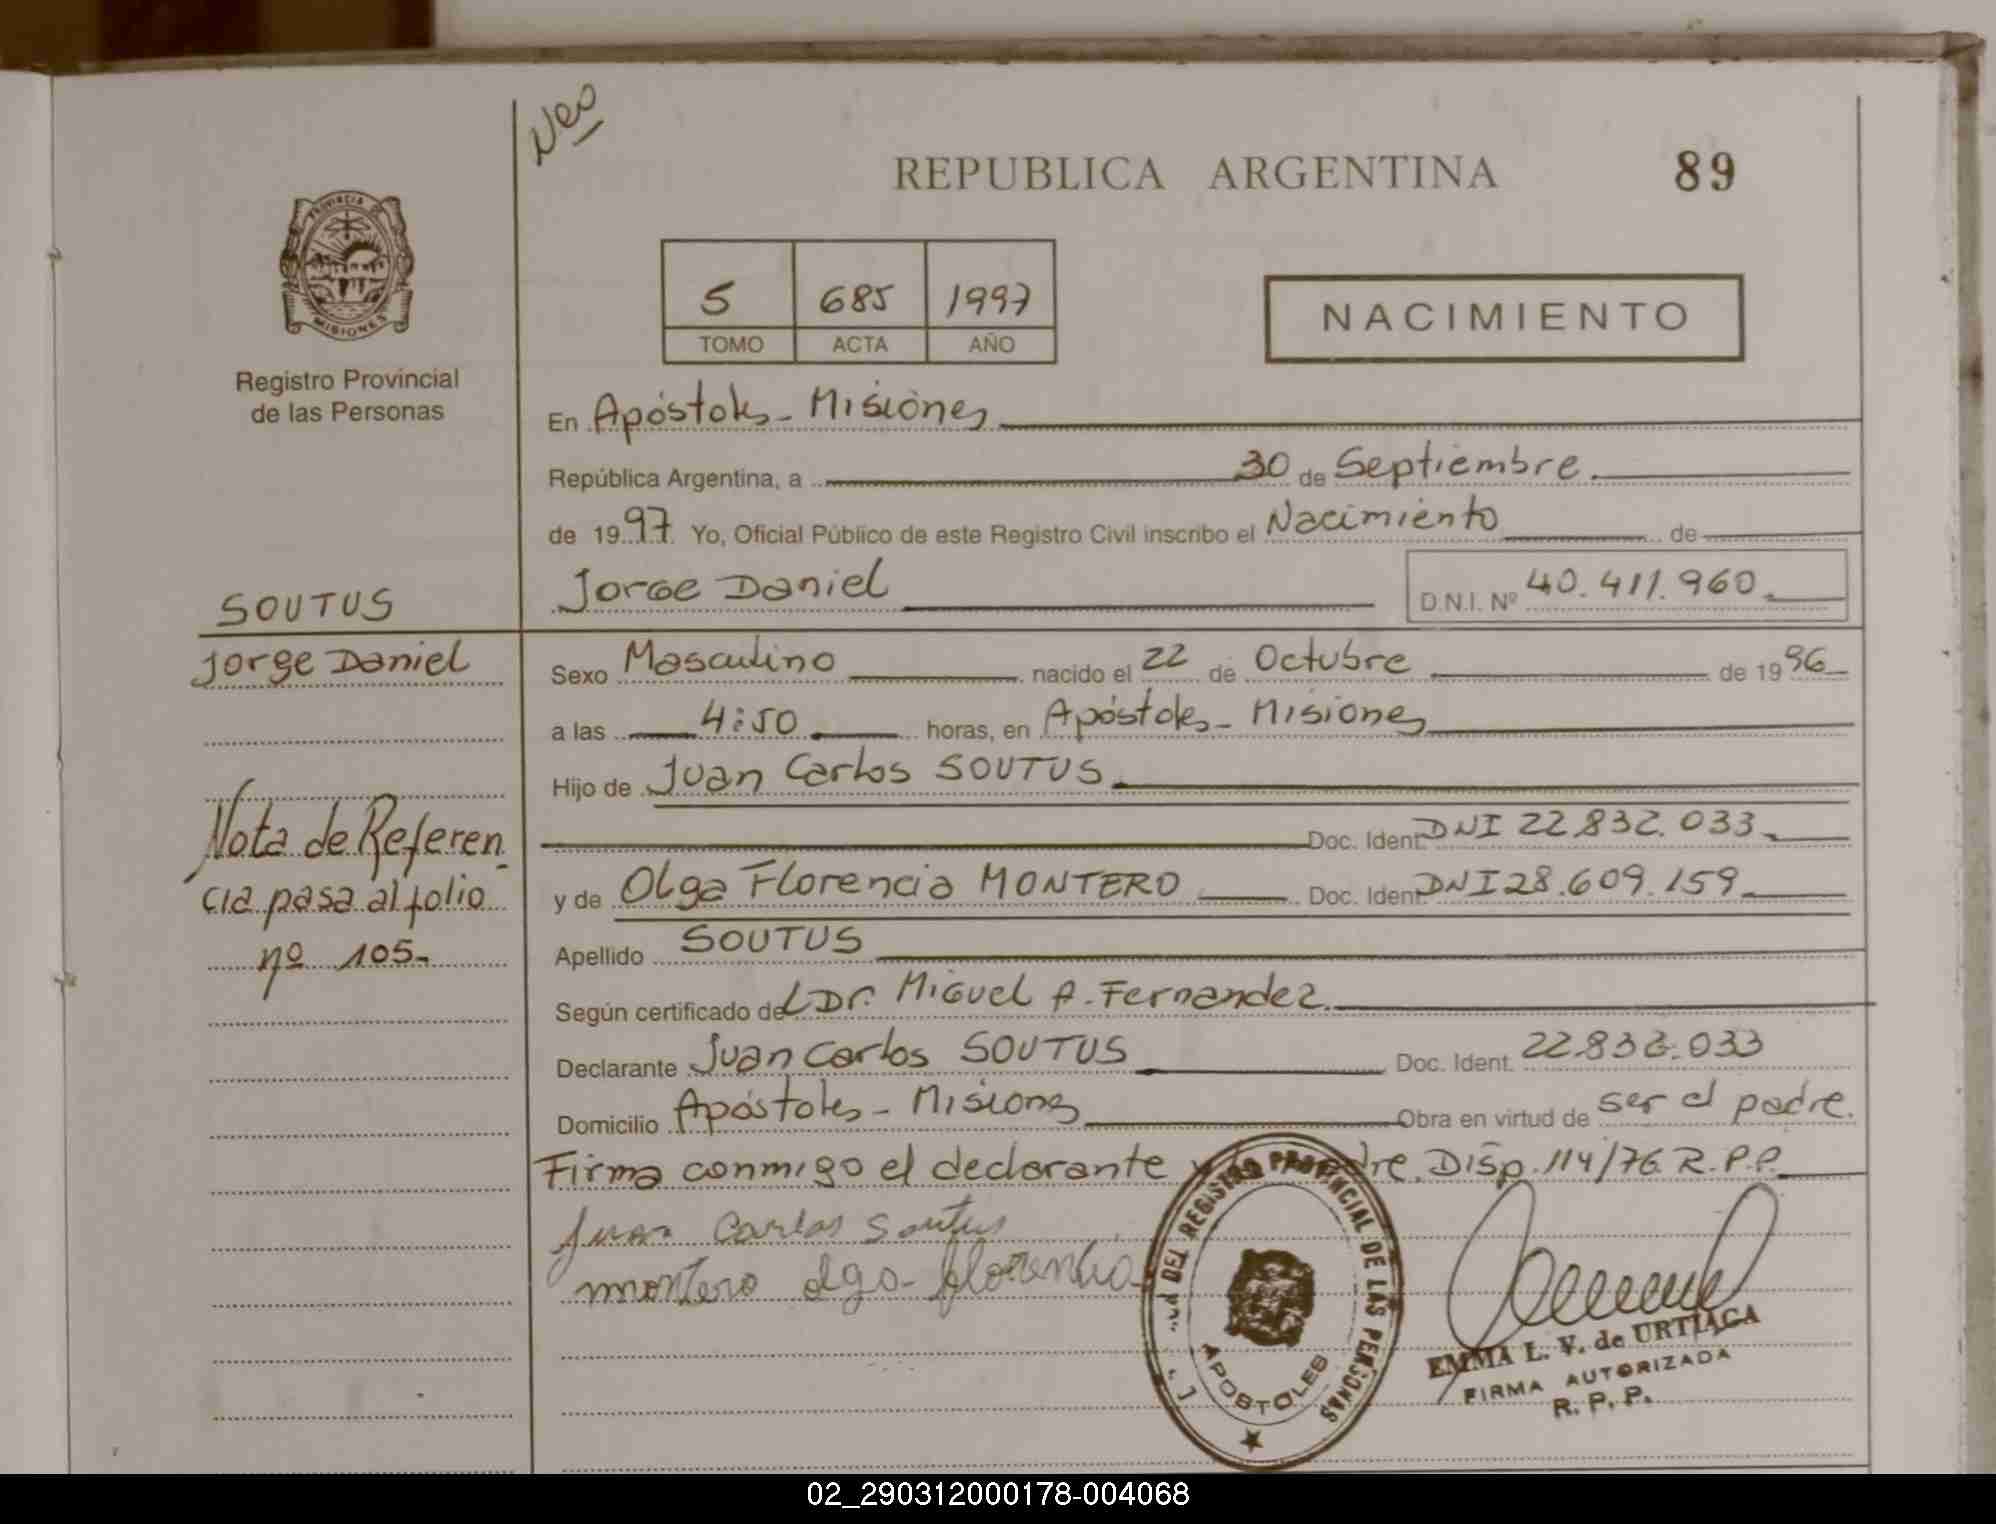 Neo
REPUBLICA ARGENTINA 89
PROVINCIA DE
MISIONES
Registro Provincial
de las Personas
5 685 1997
TOMO ACTA AÑO
NACIMIENTO
En Apóstoles - Misiones
República Argentina, a 30 de Septiembre
de 1997 Yo, Oficial Público de este Registro Civil inscribo el Nacimiento de
Jorge Daniel D.N.I. Nº 40.411.960
SOUTUS
Jorge Daniel
Sexo Masculino nacido el 22 de Octubre de 1996
a las 4:50 horas, en Apóstoles - Misiones
Hijo de Juan Carlos SOUTUS
Doc. Ident. DNI 22.832.033
y de Olga Florencia MONTERO Doc. Ident. DNI 28.609.159
Nota de Referen
cia pasa al folio
nº 105-
Apellido SOUTUS
Según certificado del Dr. Miguel A. Fernandez.
Declarante Juan Carlos SOUTUS Doc. Ident. 22.832.033
Domicilio Apóstoles - Misiones Obra en virtud de ser el padre.
Firma conmigo el declarante y la madre. Disp. 114/76 R.P.P.
Juan Carlos Soutus
montero olga florencia
DEL REGISTRO PROVINCIAL DE LAS PERSONAS
APOSTOLES
EMMA L. V. de URTIAGA
FIRMA AUTORIZADA
R. P. P.
02_290312000178-004068